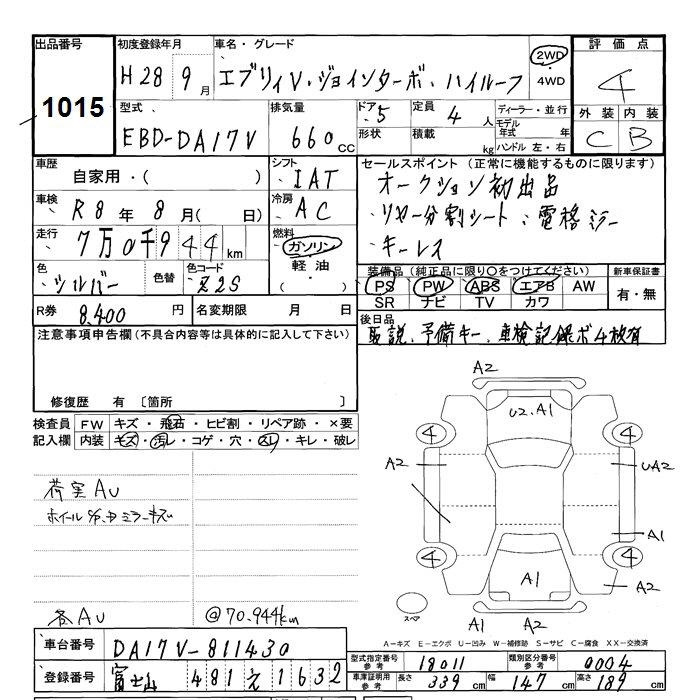 出品番号 初度登録年月 車名・グレード 2WD ・ 4WD 評価点
1015 H28 9月 エブリィV・ジョインターボ・ハイルーフ 4
型式 排気量 ドア 定員 ディーラー・並行 外装 内装
EBD-DA17V 660cc 5 4人 モデル年式 年 C B
形状 積載 kg ハンドル 左・右
車歴 シフト セールスポイント(正常に機能するものに限ります)
自家用・( ) IAT オークション初出品
車検 R8年 8月( 日) 冷房 AC ・リヤー分割シート、電格ミラー
走行 7万0千944km 燃料 ガソリン ・キーレス
軽油 ・( )
色 シルバー 色替 色コード Z2S
装備品(純正品に限り○をつけてください) 新車保証書
PS PW ABS エアB AW 有・無
SR ナビ TV カワ
R券 8,400円 名変期限 月 日
後日品
取説、予備キー、車検記録ボ4枚有
注意事項申告欄(不具合内容等は具体的に記入して下さい)
修復歴 有 〔箇所
検査員 FW キズ・飛石・ヒビ割・リペア跡・×要
記入欄 内装 キズ・汚レ・コゲ・穴・スレ・キレ・破レ
A2
U2、A1
4 4
A2 UA2
荷室AU
A1
4 4
A1 A2
スペア
A1 A2
各AU @70,944km
A-キズ E-エクボ U-凹み W-補修跡 S-サビ C-腐食 XX-交換済
車台番号 DA17V-811430
型式指定番号 参考 18011 類別区分番号 参考 0004
登録番号 富士山 481 え 1632
車庫証明用 参考 長さ 339cm 幅 147cm 高さ 189cm